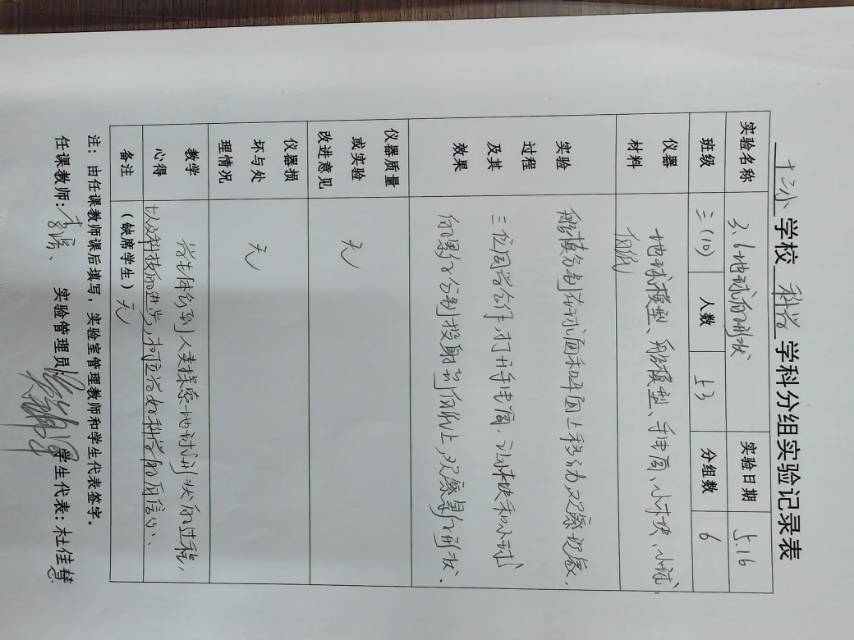 十二小学校 科学 学科分组实验记录表
实验名称 3.6地球的形状 实验日期 5.16
班级 三(10) 人数 53 分组数 6
仪器材料 地球模型、船模型、手电筒、小木块、小球、
白纸
实验过程及其效果 船模分别在球面和平面上移动,观察现象.
三位同学合作,打开手电筒.让木块和小球
的影子分别投射到白纸上,观察影子形状.
仪器质量或实验改进意见 无
仪器损坏与处理情况 无
教学心得 学生体会到人类探索地球形状的过程,
以及科技的进步,树立学好科学的自信心.
备注 (缺席学生)无
注:由任课教师课后填写,实验室管理教师和学生代表签字。
任课教师: 实验管理员 学生代表:杜佳慧